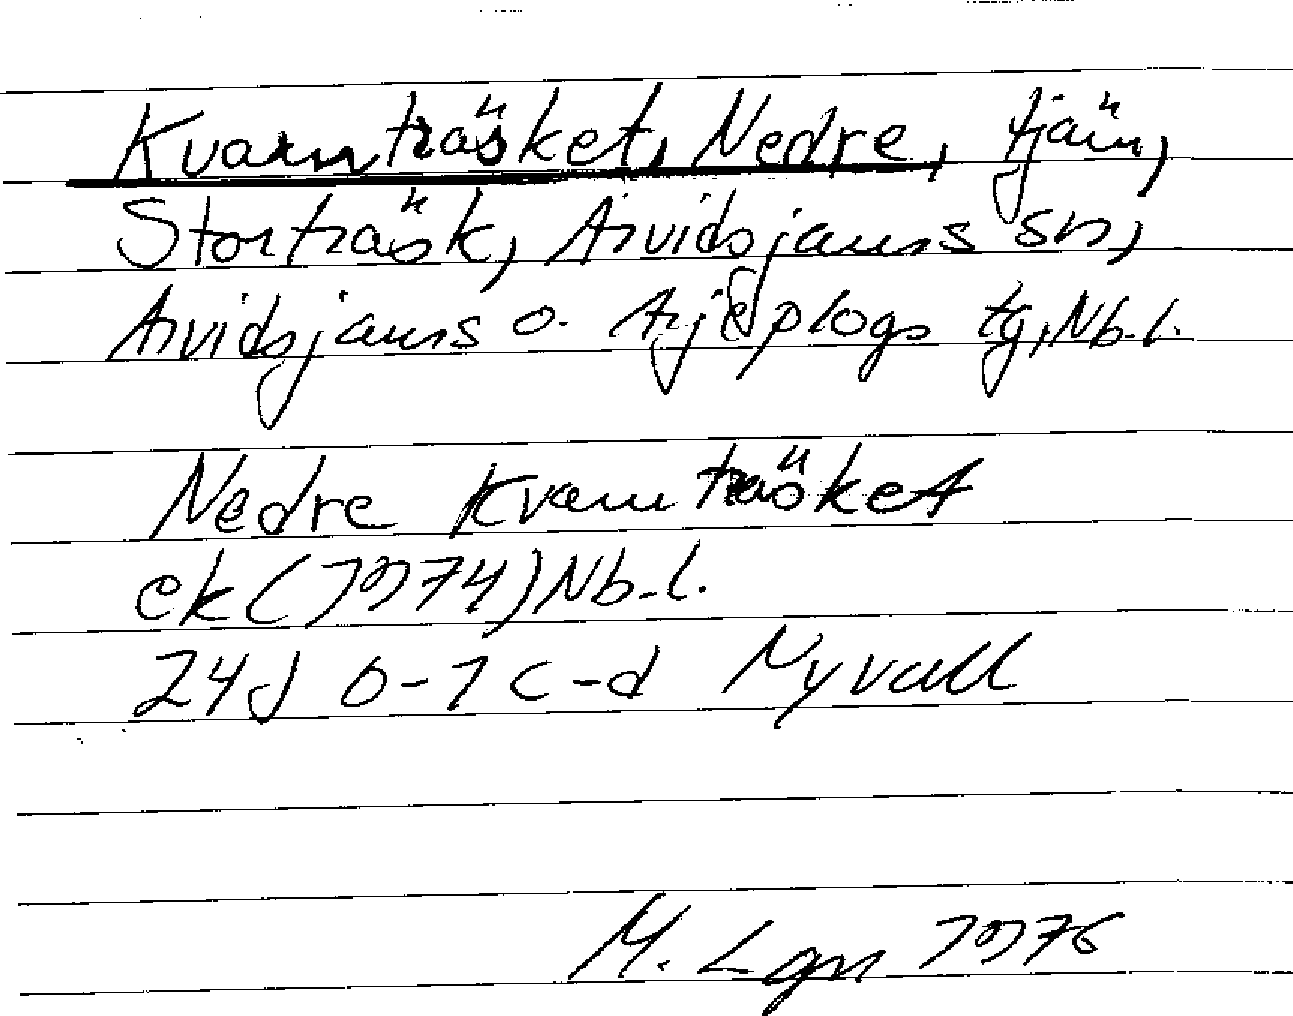 Kvarnträsket, Nedre, tjärn,
Storträsk, Arvidsjaurs sn,
Arvidsjaurs o. Arjeplogs tg, Nb.l.
Nedre Kvarnträsket
ek (1974) Nb.l.
24J 0-1 c-d Nyvall
M. Lgn 1976